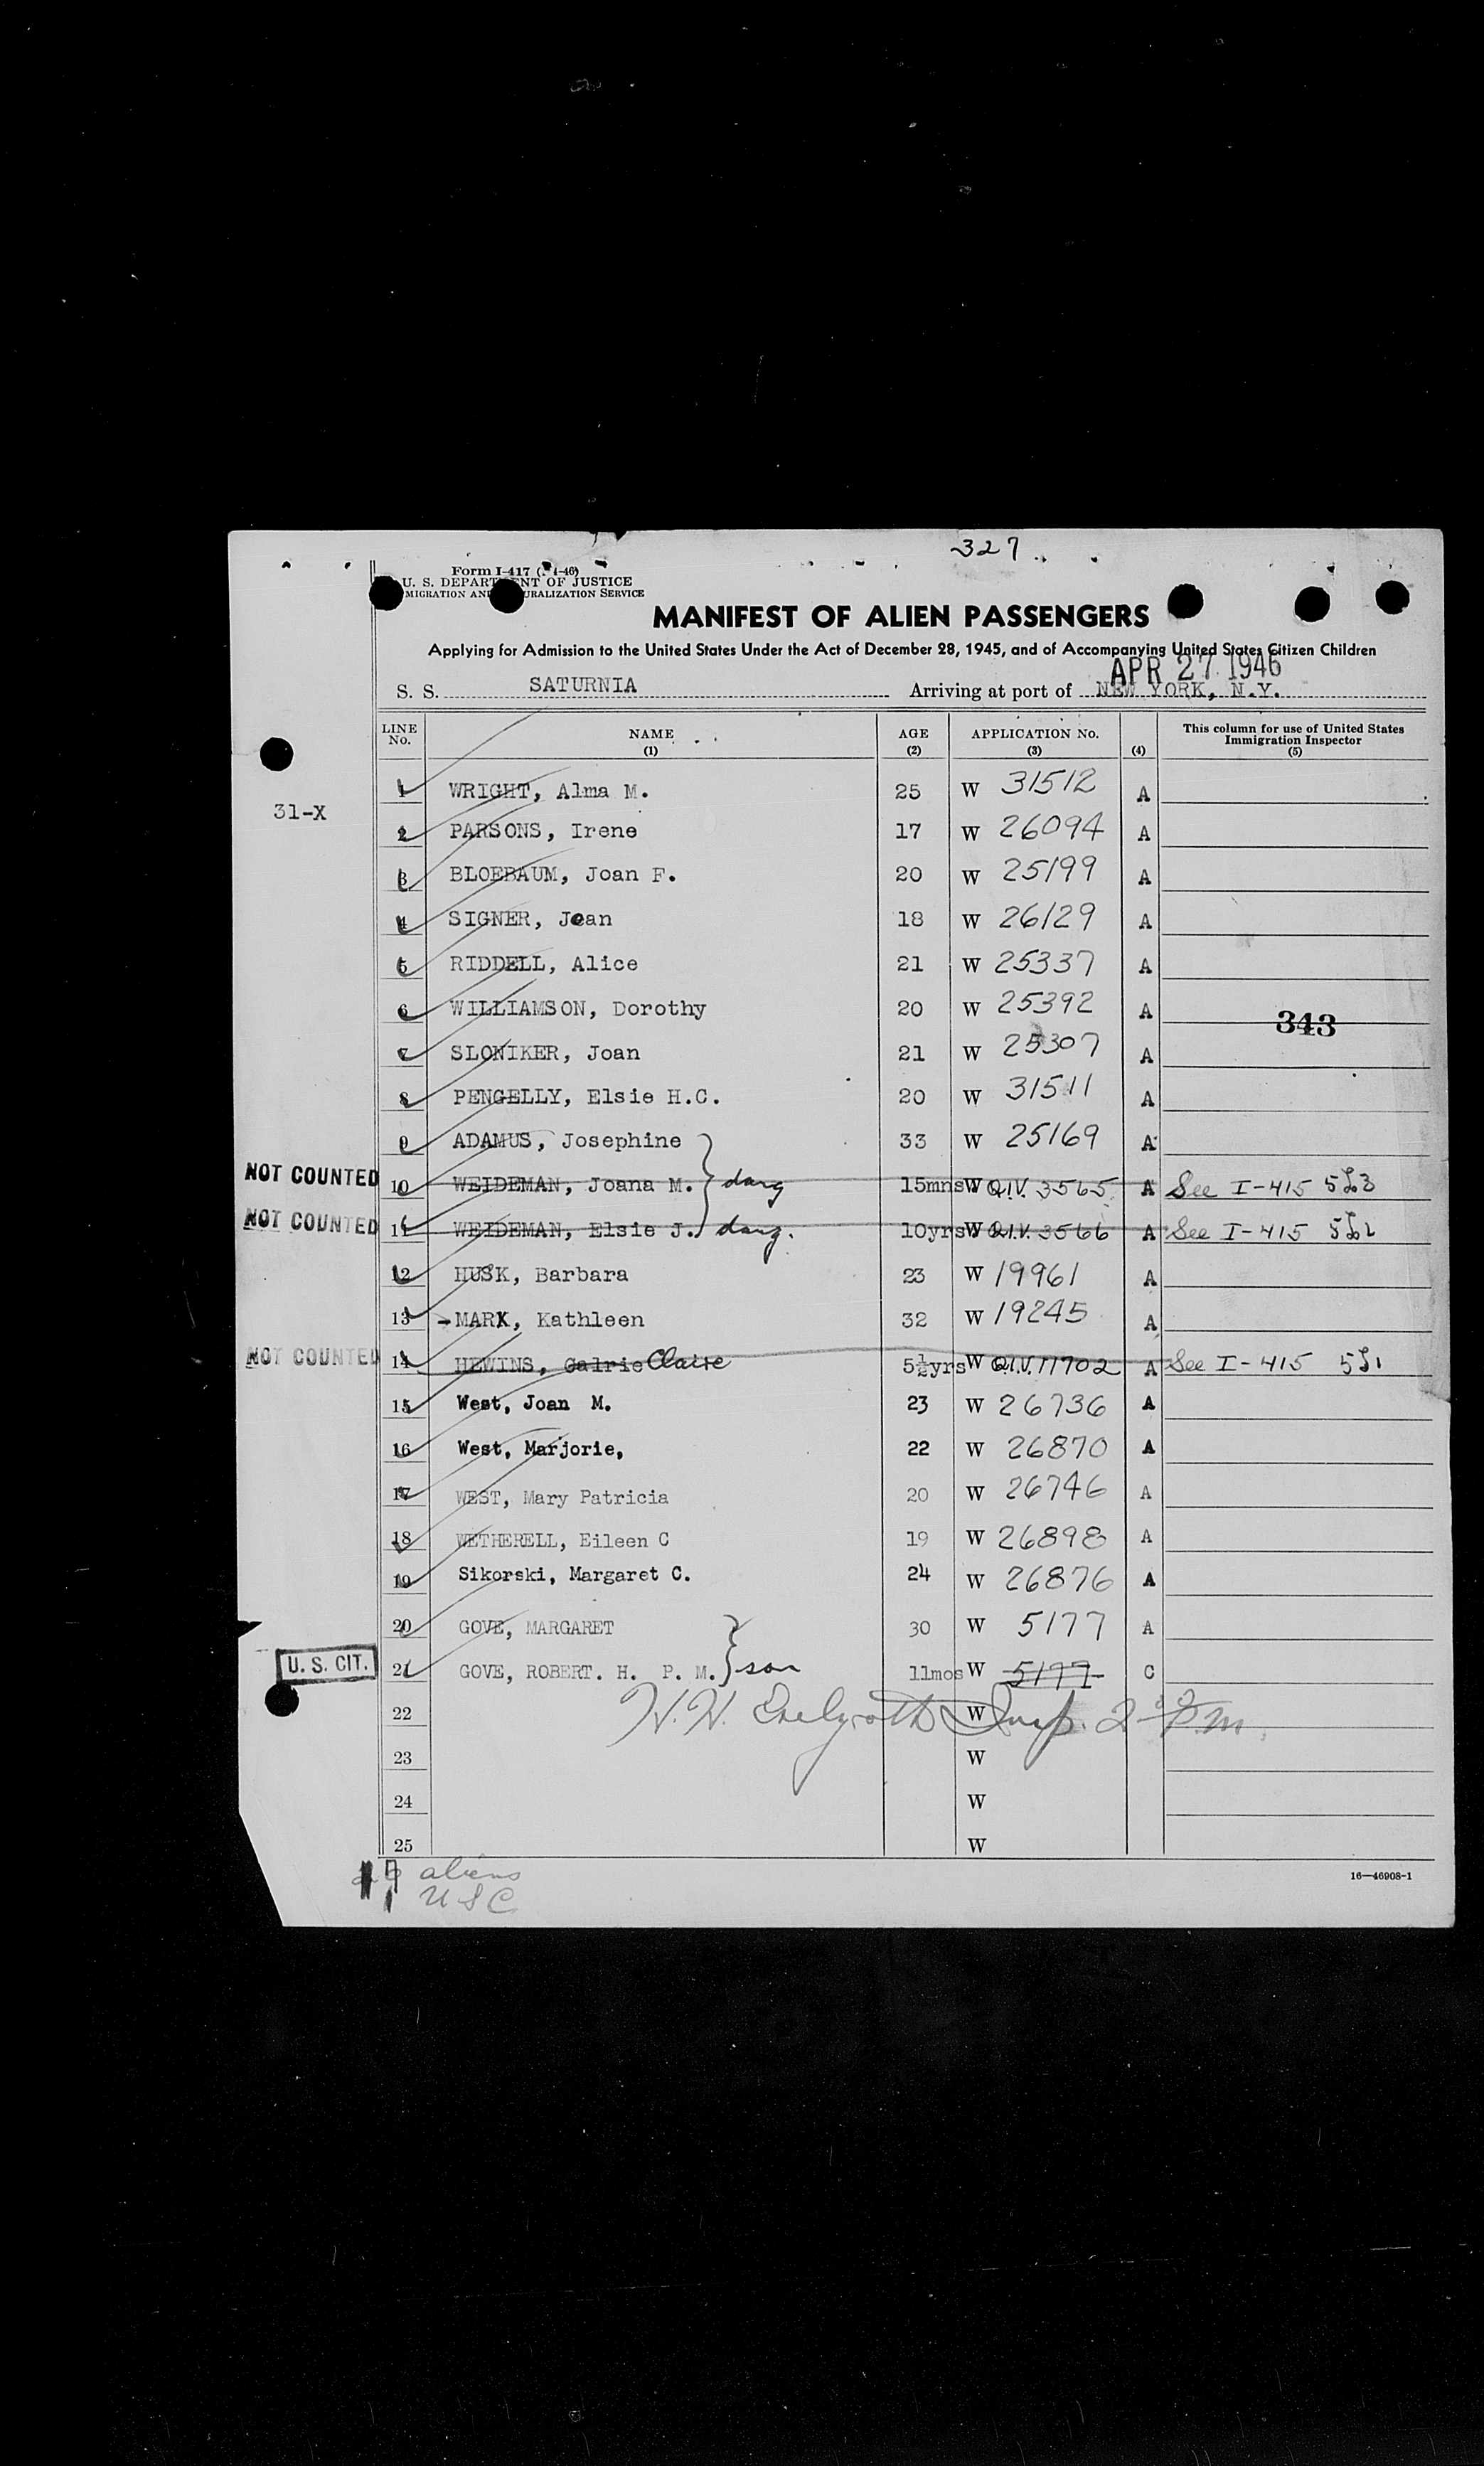 327
Form I-417 ( 1-46)
U. S. DEPART NT OF JUSTICE
MIGRATION AN URALIZATION SERVICE
MANIFEST OF ALIEN PASSENGERS
Applying for Admission to the United States Under the Act of December 28, 1945, and of Accompanying United States Citizen Children
APR 27 1946
S. S. SATURNIA Arriving at port of NEW YORK, N.Y.
LINE No. NAME (1) AGE (2) APPLICATION No. (3) (4) This column for use of United States Immigration Inspector (5)
31-X
1 WRIGHT, Alma M. 25 W 31512 A
2 PARSONS, Irene 17 W 26094 A
3 BLOEBAUM, Joan F. 20 W 25199 A
4 SIGNER, Jean 18 W 26129 A
5 RIDDELL, Alice 21 W 25337 A
6 WILLIAMSON, Dorothy 20 W 25392 A 343
7 SLONIKER, Joan 21 W 25307 A
8 PENGELLY, Elsie H.C. 20 W 31511 A
9 ADAMUS, Josephine 33 W 25169 A
NOT COUNTED 10 WEIDEMAN, Joana M. daug 15mns W Q.I.V. 3565 A See I-415 5L3
NOT COUNTED 11 WEIDEMAN, Elsie J. daug. 10yrs W Q.I.V. 3566 A See I-415 5L2
12 HUSK, Barbara 23 W 19961 A
13 MARK, Kathleen 32 W 19245 A
NOT COUNTED 14 HEWINS, Galrie Claire 5½yrs W Q.I.V. 11702 A See I-415 5L1
15 West, Joan M. 23 W 26736 A
16 West, Marjorie, 22 W 26870 A
17 WEST, Mary Patricia 20 W 26746 A
18 WETHERELL, Eileen C 19 W 26898 A
19 Sikorski, Margaret C. 24 W 26876 A
20 GOVE, MARGARET 30 W 5177 A
U. S. CIT. 21 GOVE, ROBERT. H. P. M. son 11mos W 5177 C
22 H. H. Insp. 2 P.m. W
23 W
24 W
25 W
17 aliens
1 USC
16—46908-1